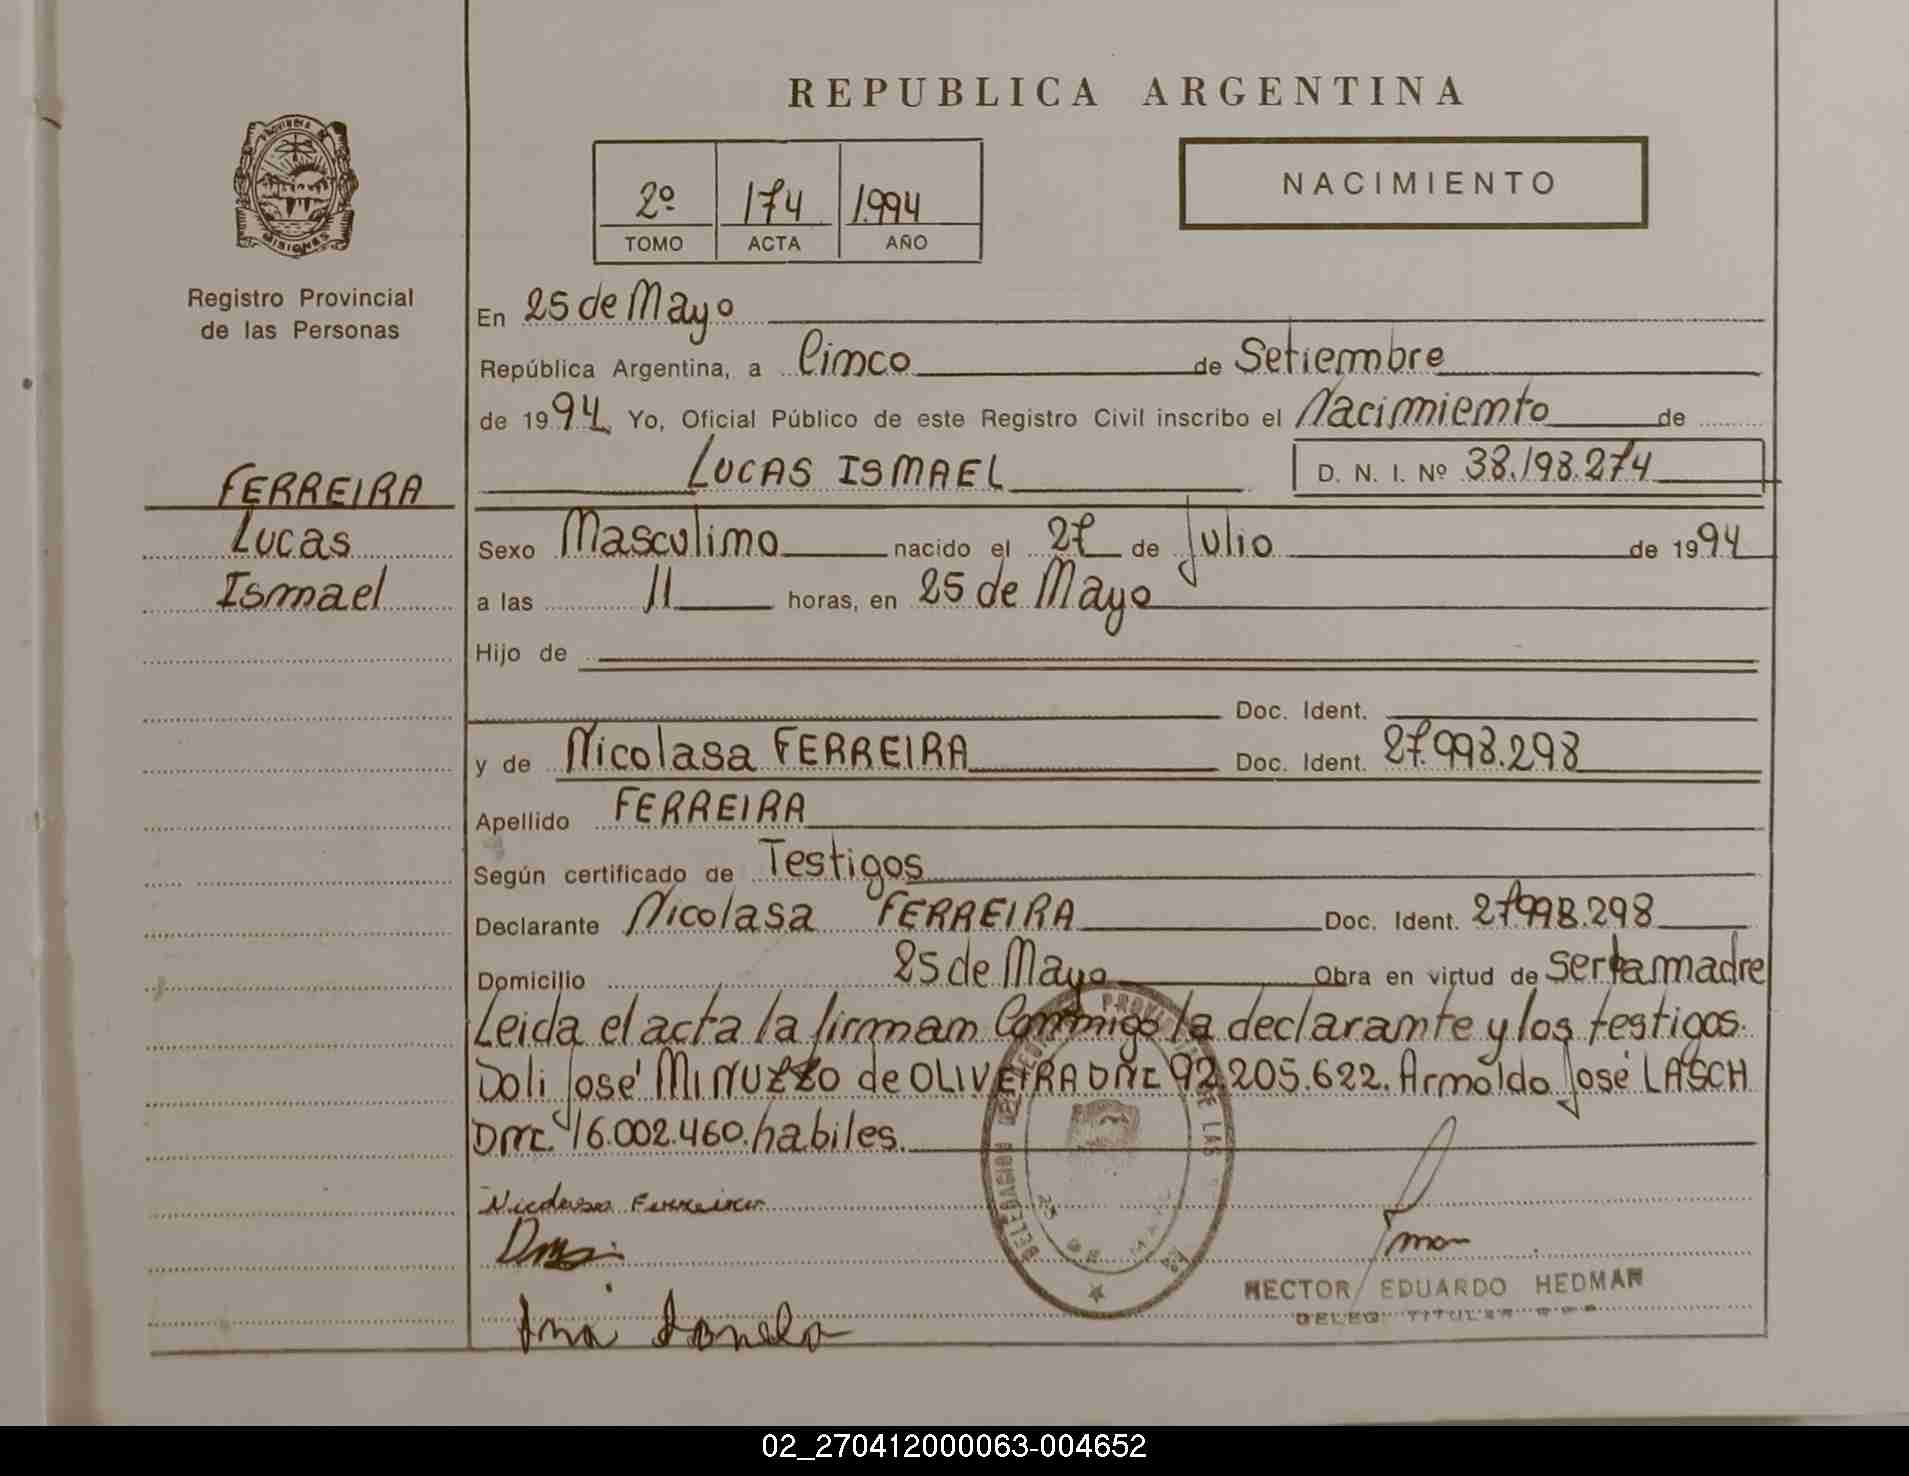 REPUBLICA ARGENTINA
PROVINCIA DE
MISIONES
Registro Provincial
de las Personas
2º 174 1994
TOMO ACTA AÑO
NACIMIENTO
En 25 de Mayo
República Argentina, a Cinco de Setiembre
de 1994 Yo, Oficial Público de este Registro Civil inscribo el Nacimiento de
LUCAS ISMAEL D. N. I. Nº 38.198.274
FERREIRA
Lucas
Ismael
Sexo Masculino nacido el 27 de Julio de 1994
a las 11 horas, en 25 de Mayo
Hijo de
Doc. Ident.
y de Nicolasa FERREIRA Doc. Ident. 27.998.298
Apellido FERREIRA
Según certificado de Testigos
Declarante Nicolasa FERREIRA Doc. Ident. 27998.298
Domicilio 25 de Mayo Obra en virtud de ser la madre
Leida el acta la firman Conmigo la declarante y los testigos.
Doli José MINUZZO de OLIVEIRA DNI 92.205.622. Arnoldo José LASCH
DNI. 16.002.460. habiles.
Nicolasa Ferreira
HECTOR EDUARDO HEDMAN
DELEG. TITULAR
DELEGACION DE REGISTRO PROVINCIAL DE LAS
25 DE MAYO
02_270412000063-004652